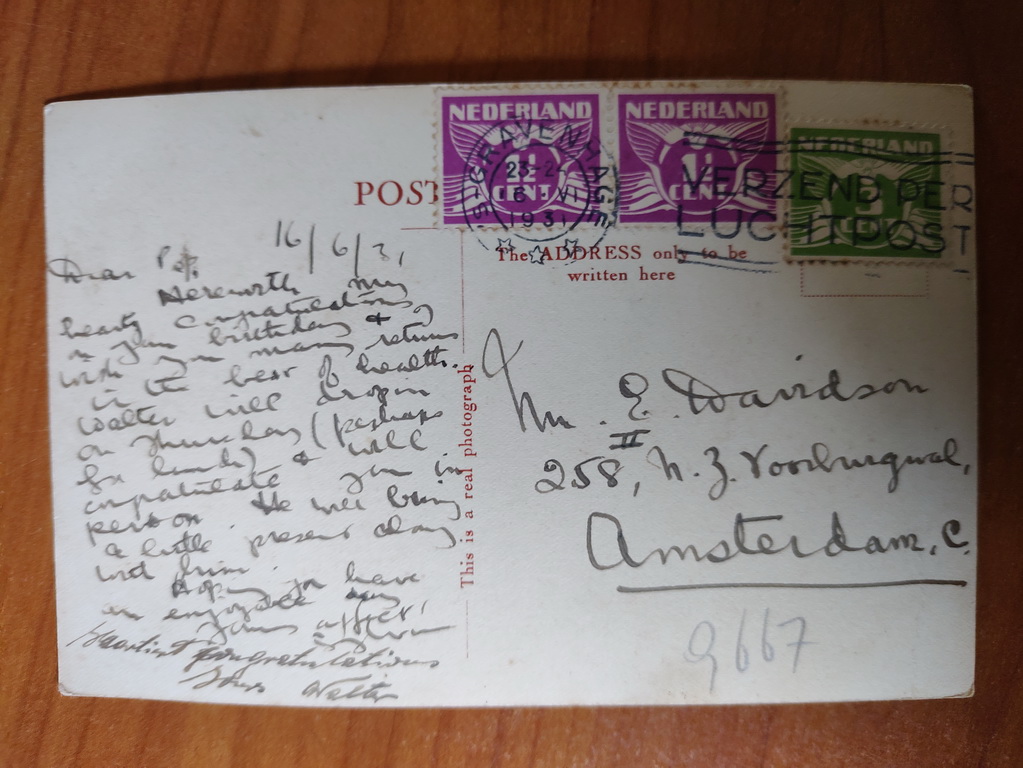 NEDERLAND
NEDERLAND
NEDERLAND
1½
CENT
1½
CENT
'S-GRAVENHAGE
6 VI
1931
VERZEND PER
LUCHTPOST
POST
The ADDRESS only to be
written here
This is a real photograph
16/6/31
Dear
Herewith my
hearty congratulations
on your birthday &
wish you many returns
in the best of health.
Walter will drop in
on Thursday (perhaps
for lunch) & will
congratulate you in
person. He will bring
a little present along
with him.
Hoping you have
an enjoyable day
Yours affect.
Heartiest congratulations
Yours Walter
Mr. E. Davidson
258, N. Z. Voorburgwal,
Amsterdam, C.
9667